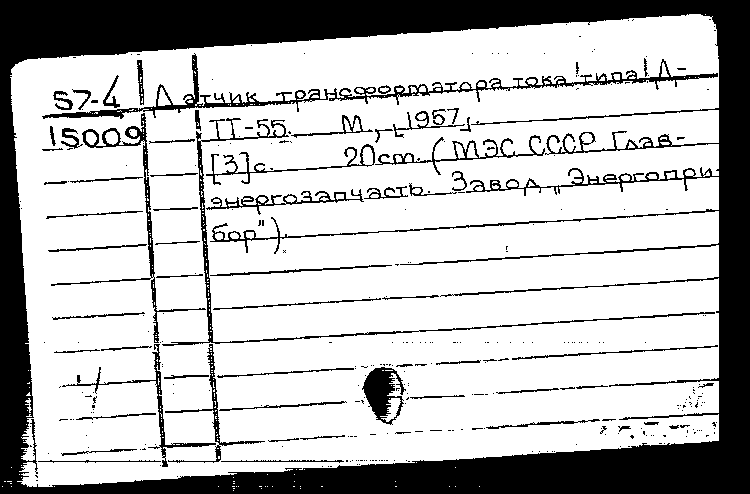 57-4 Датчик трансформатора тока типа Д-
15009 ТТ-55. М., [1957].
[3]с. 20см. (МЭС СССР. Глав-
энергозапчасть. Завод „Энергопри-
бор").
4